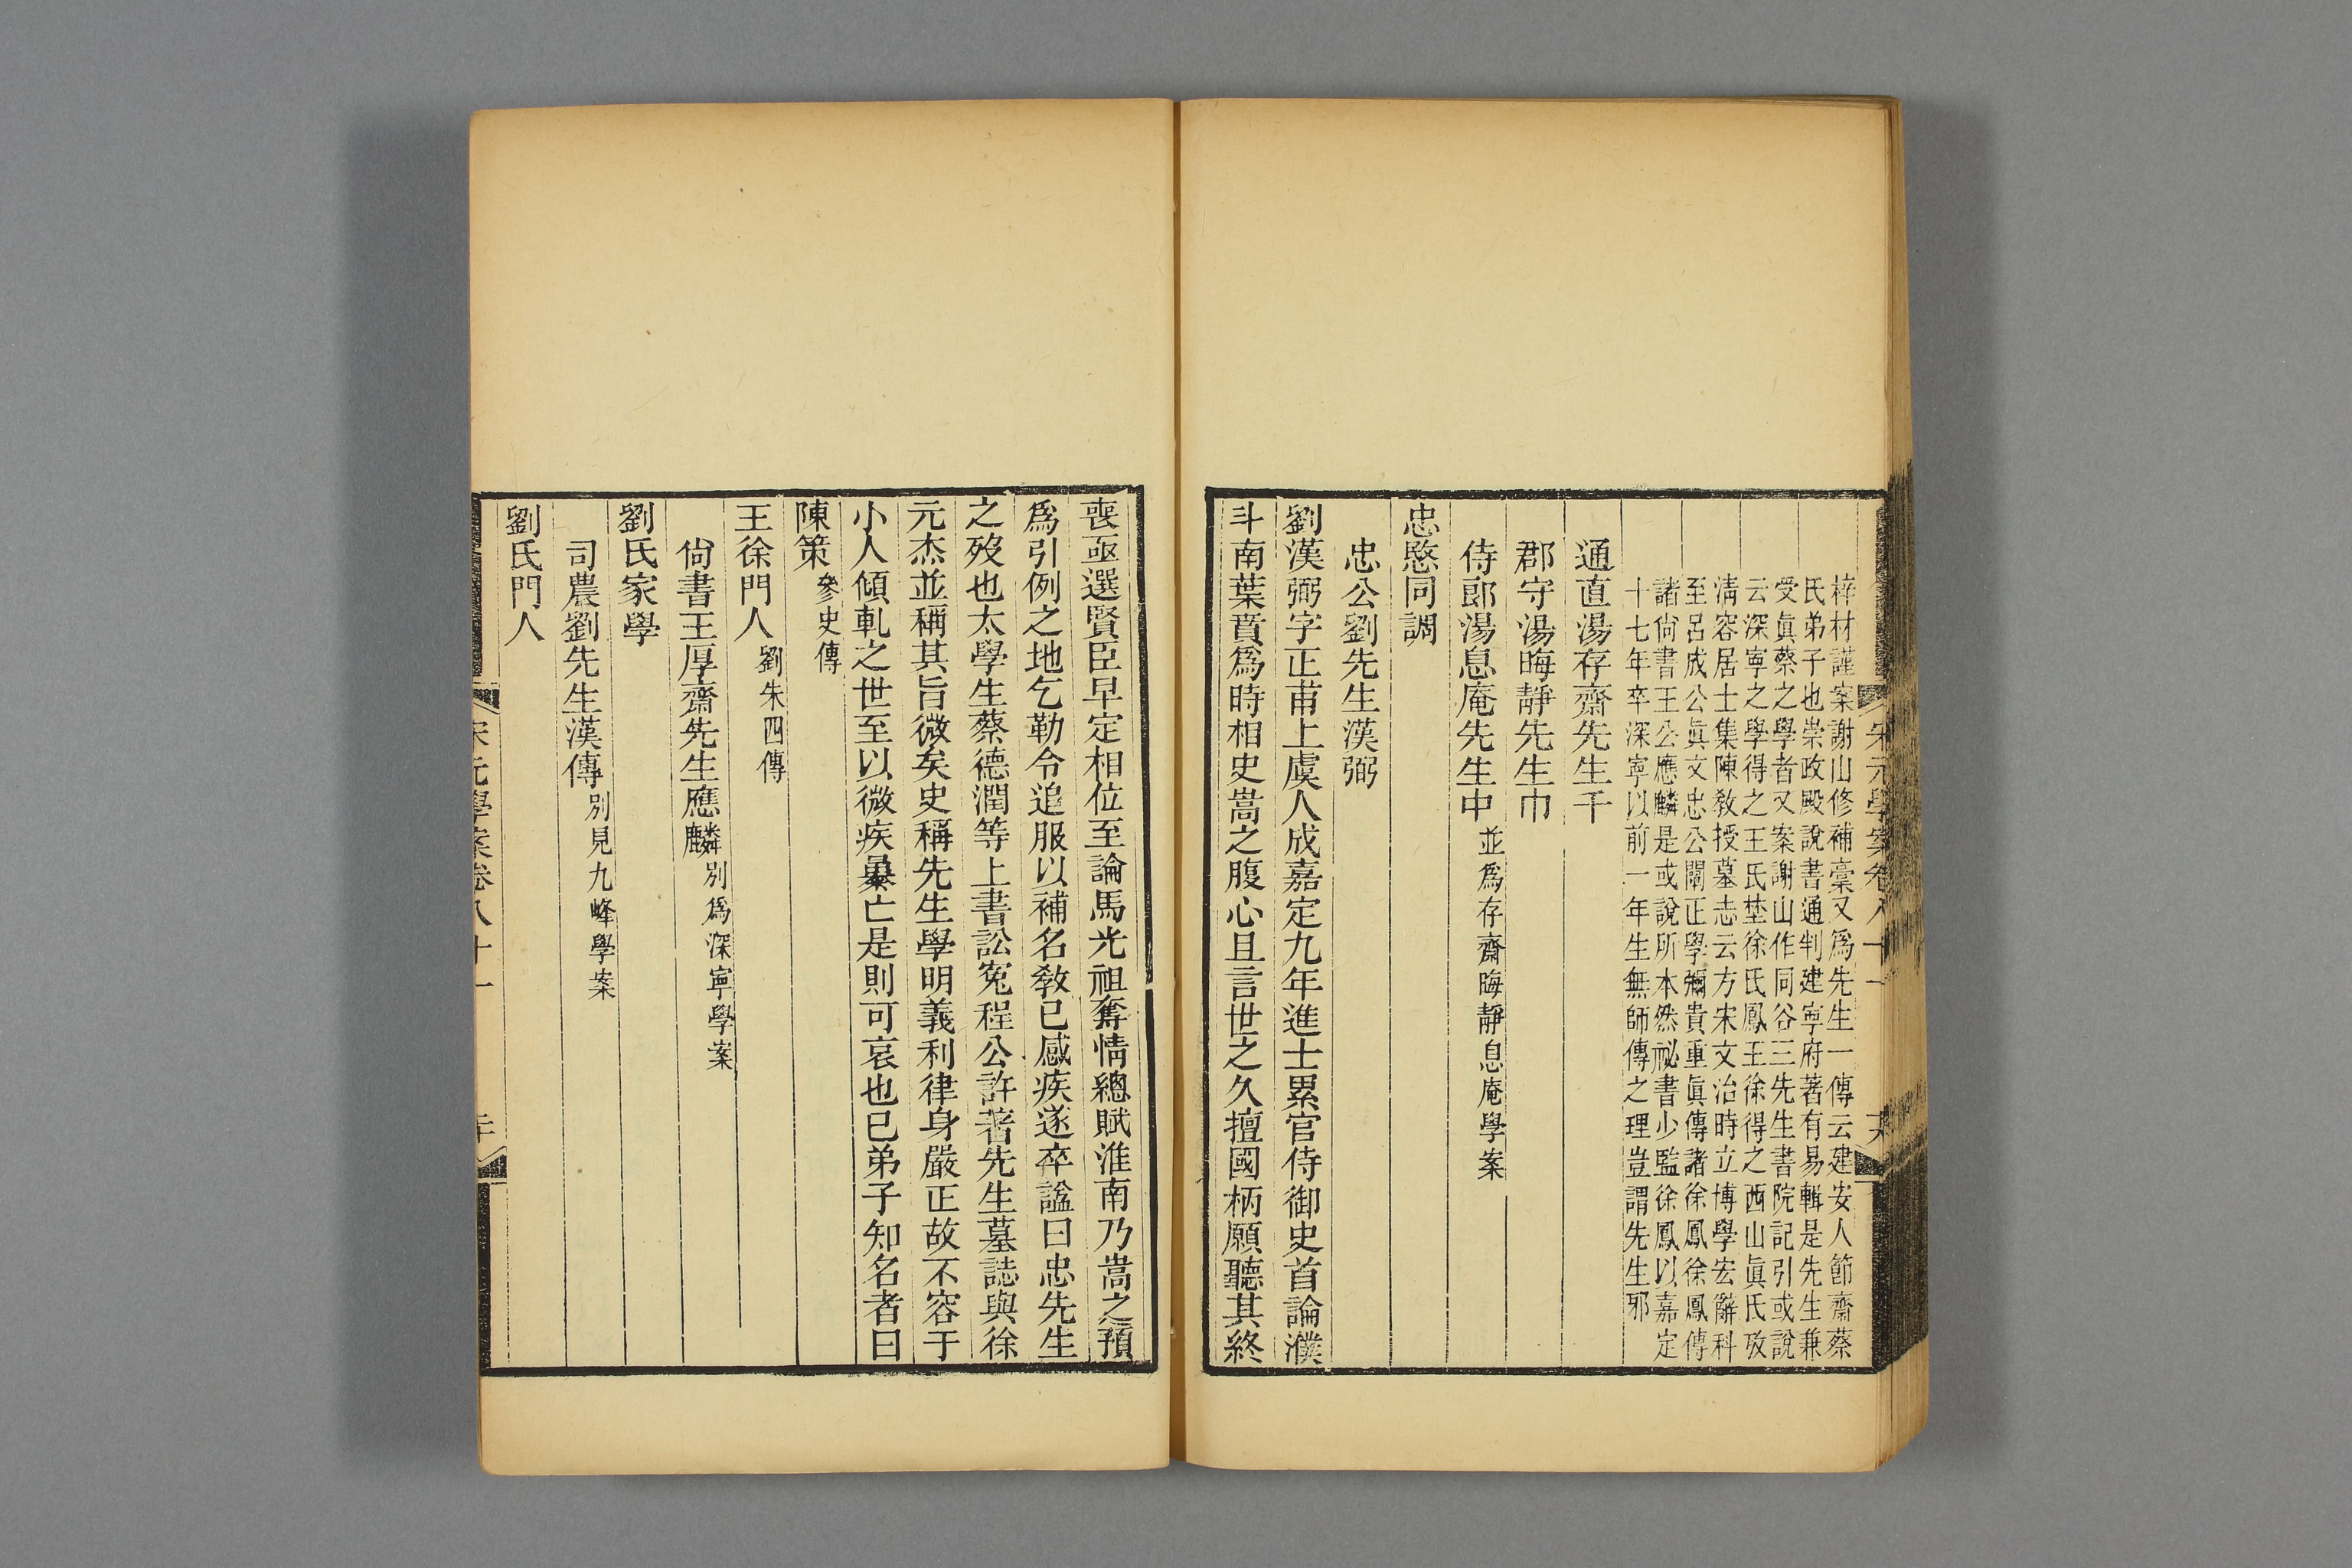 梓材謹案謝山修補稾又爲先生一傳云建安人節齋蔡
氏弟子也崇政殿說書通判建寧府著有易輯是先生兼
受眞蔡之學者又案謝山作同谷三先生書院記引或說
云深寧之學得之王氏埜徐氏鳳王徐得之西山眞氏攷
淸容居士集陳敎授墓志云方宋文治時立博學宏辭科
至呂成公眞文忠公闡正學彌貴重眞傳諸徐鳳徐鳳傳
諸尙書王公應麟是或說所本然祕書少監徐鳳以嘉定
十七年卒深寧以前一年生無師傳之理豈謂先生邪
通直湯存齋先生千
郡守湯晦靜先生巾
侍郞湯息庵先生中並爲存齋晦靜息庵學案
忠愍同調
忠公劉先生漢弼
劉漢弼字正甫上虞人成嘉定九年進士累官侍御史首論濮
斗南葉賁爲時相史嵩之腹心且言世之久擅國柄願聽其終
宋元學案卷八十一
喪亟選賢臣早定相位至論馬光祖奪情總賦淮南乃嵩之預
爲引例之地乞勒令追服以補名敎已感疾遂卒諡曰忠先生
之歿也太學生蔡德潤等上書訟冤程公許著先生墓誌與徐
元杰並稱其旨微矣史稱先生學明義利律身嚴正故不容于
小人傾軋之世至以微疾暴亡是則可哀也已弟子知名者曰
陳策參史傳
王徐門人劉朱四傳
尙書王厚齋先生應麟別爲深寧學案
劉氏家學
司農劉先生漢傳別見九峰學案
劉氏門人
宋元學案卷八十一